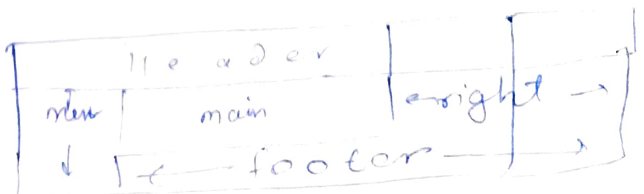 Header
menu main right
footer